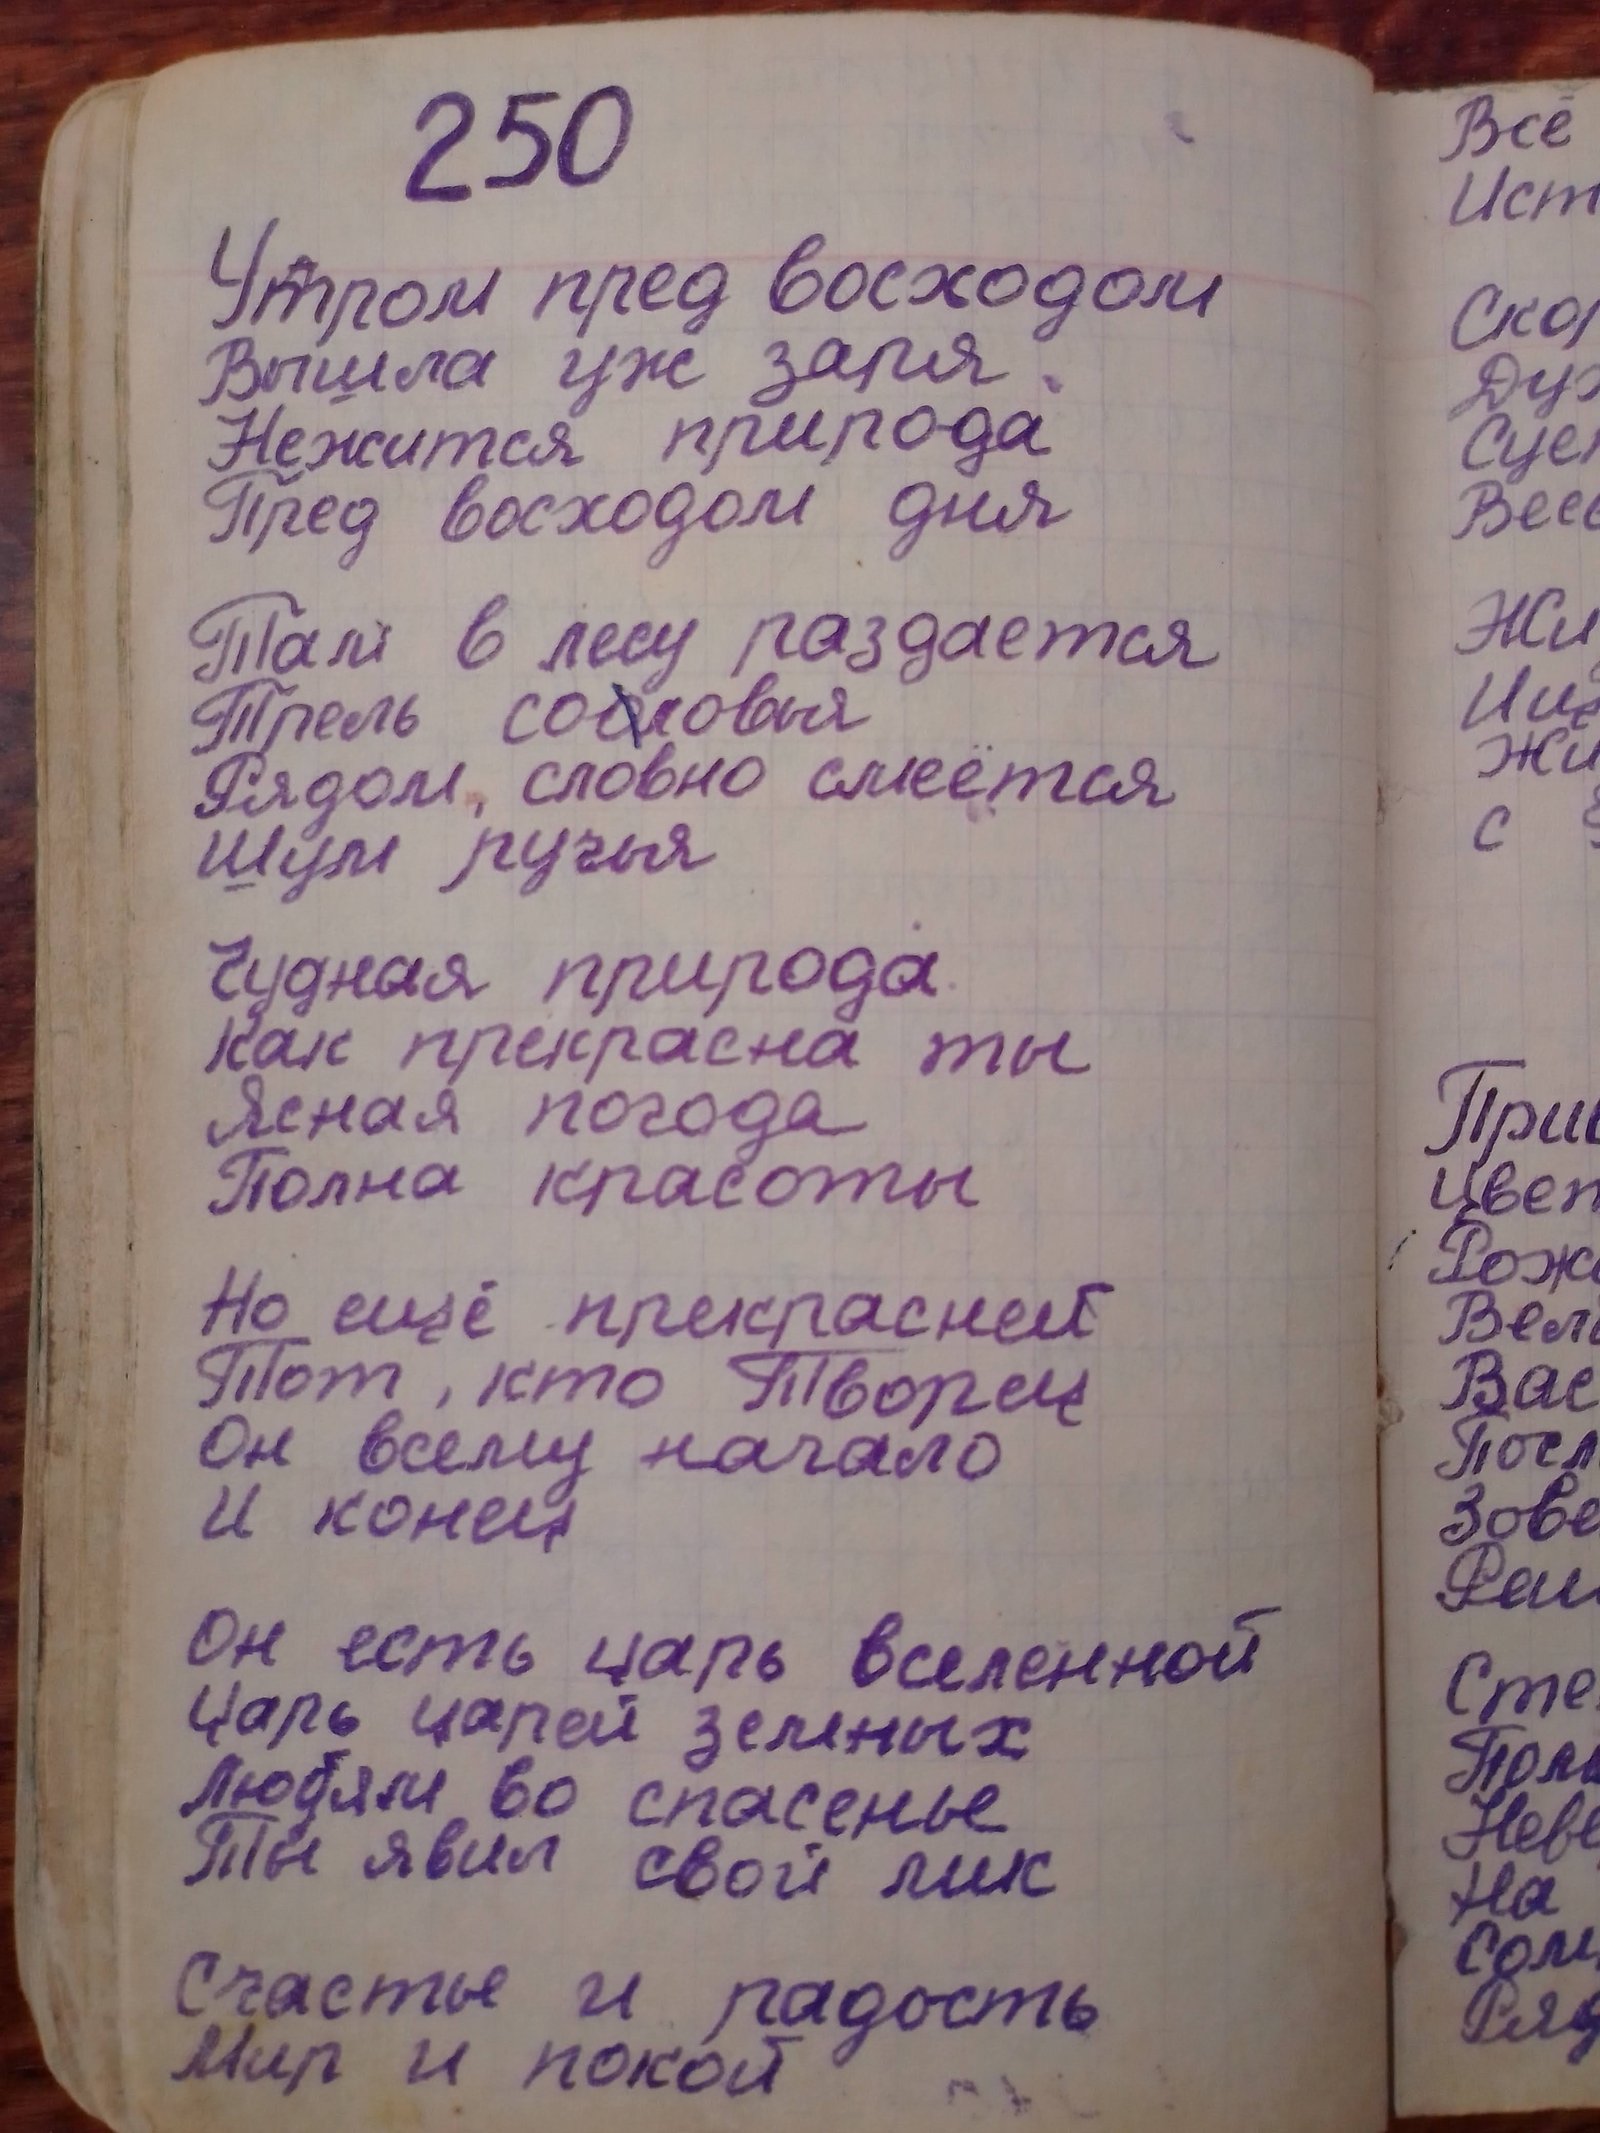 250
Утром пред восходом
Вышла уж заря.
Нежится природа
Пред восходом дня
Там в лесу раздается
Трель соловья
Рядом, словно смеётся
Шум ручья
Чудная природа
Как прекрасна ты
Ясная погода
Полна красоты
Но ещё прекрасней
Тот, кто Творец
Он всему начало
И конец
Он есть царь вселенной
Царь царей земных
Людям во спасенье
Ты явил свой лик
Счастье и радость
Мир и покой
Всё
с
На